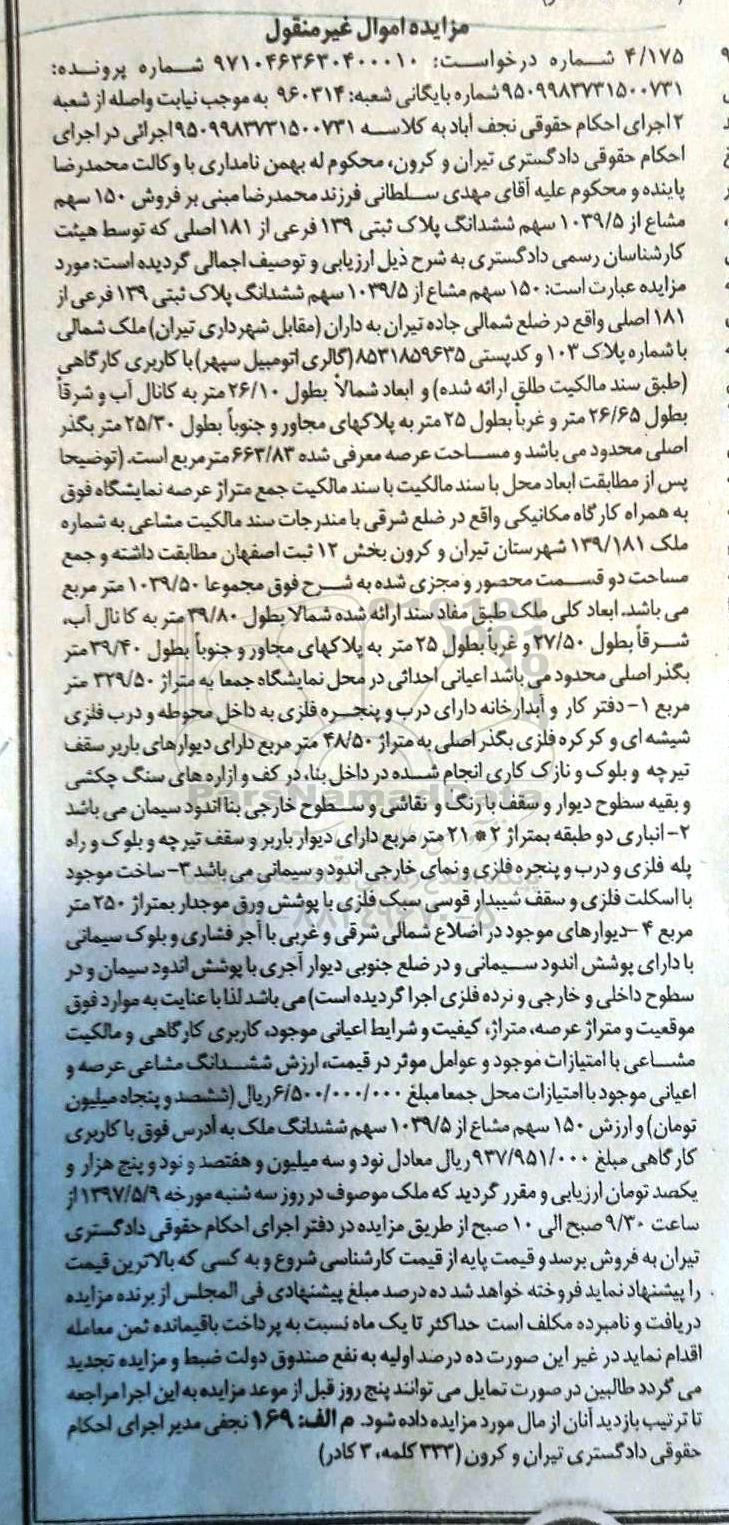 مزایده اموال غیر منقول
۴/۱۷۵ شماره درخواست: ۹۷۱۰۴۶۳۶۳۰۴۰۰۰۱۰ شماره پرونده:
۹۵۰۹۹۸۳۷۳۱۵۰۰۷۳۱ شماره بایگانی شعبه: ۹۶۰۳۱۴ به موجب نیابت واصله از شعبه
۲ اجرای احکام حقوقی نجف آباد به کلاسه ۹۵۰۹۹۸۳۷۳۱۵۰۰۷۳۱ اجرائی در اجرای
احکام حقوقی دادگستری تیران و کرون، محکوم له بهمن نامداری با وکالت محمدرضا
پاینده و محکوم علیه آقای مهدی سلطانی فرزند محمدرضا مبنی بر فروش ۱۵۰ سهم
مشاع از ۱۰۳۹/۵ سهم ششدانگ پلاک ثبتی ۱۳۹ فرعی از ۱۸۱ اصلی که توسط هیئت
کارشناسان رسمی دادگستری به شرح ذیل ارزیابی و توصیف اجمالی گردیده است: مورد
مزایده عبارت است: ۱۵۰ سهم مشاع از ۱۰۳۹/۵ سهم ششدانگ پلاک ثبتی ۱۳۹ فرعی از
۱۸۱ اصلی واقع در ضلع شمالی جاده تیران به داران (مقابل شهرداری تیران) ملک شمالی
با شماره پلاک ۱۰۳ و کدپستی ۸۵۳۱۸۵۹۶۳۵ (گالری اتومبیل سپهر) با کاربری کارگاهی
(طبق سند مالکیت طلق ارائه شده) و ابعاد شمالاً بطول ۲۶/۱۰ متر به کانال آب و شرقاً
بطول ۲۶/۶۵ متر و غرباً بطول ۲۵ متر به پلاکهای مجاور و جنوباً بطول ۲۵/۳۰ متر بگذر
اصلی محدود می باشد و مساحت عرصه معرفی شده ۶۶۳/۸۳ مترمربع است. (توضیحا
پس از مطابقت ابعاد محل با سند مالکیت با سند مالکیت جمع متراژ عرصه نمایشگاه فوق
به همراه کارگاه مکانیکی واقع در ضلع شرقی با مندرجات سند مالکیت مشاعی به شماره
ملک ۱۳۹/۱۸۱ شهرستان تیران و کرون بخش ۱۲ ثبت اصفهان مطابقت داشته و جمع
مساحت دو قسمت محصور و مجزی شده به شرح فوق مجموعا ۱۰۳۹/۵۰ متر مربع
می باشد. ابعاد کلی ملک طبق مفاد سند ارائه شده شمالا بطول ۳۹/۸۰ متر به کانال آب،
شرقاً بطول ۲۷/۵۰ و غرباً بطول ۲۵ متر به پلاکهای مجاور و جنوباً بطول ۳۹/۴۰ متر
بگذر اصلی محدود می باشد اعیانی احداثی در محل نمایشگاه جمعا به متراژ ۳۲۹/۵۰ متر
مربع ۱- دفتر کار و آبدارخانه دارای درب و پنجره فلزی به داخل محوطه و درب فلزی
شیشه ای و کرکره فلزی بگذر اصلی به متراژ ۴۸/۵۰ متر مربع دارای دیوارهای باربر سقف
تیرچه و بلوک و نازک کاری انجام شده در داخل بنا، در کف و ازاره های سنگ چکشی
و بقیه سطوح دیوار و سقف با رنگ و نقاشی و سطوح خارجی بنا اندود سیمان می باشد
۲- انباری دو طبقه بمتراژ ۲*۲۱ متر مربع دارای دیوار باربر و سقف تیرچه و بلوک و راه
پله فلزی و درب و پنجره فلزی و نمای خارجی اندود و سیمانی می باشد ۳- ساخت موجود
با اسکلت فلزی و سقف شیبدار قوسی سبک فلزی با پوشش ورق موجدار بمتراژ ۲۵۰ متر
مربع ۴- دیوارهای موجود در اضلاع شمالی شرقی و غربی با آجر فشاری و بلوک سیمانی
با دارای پوشش اندود سیمانی و در ضلع جنوبی دیوار آجری با پوشش اندود سیمان و در
سطوح داخلی و خارجی و نرده فلزی اجرا گردیده است) می باشد لذا با عنایت به موارد فوق
موقعیت و متراژ عرصه، متراژ، کیفیت و شرایط اعیانی موجود، کاربری کارگاهی و مالکیت
مشاعی با امتیازات موجود و عوامل موثر در قیمت، ارزش ششدانگ مشاعی عرصه و
اعیانی موجود با امتیازات محل جمعا مبلغ ۶/۵۰۰/۰۰۰/۰۰۰ ریال (ششصد و پنجاه میلیون
تومان) و ارزش ۱۵۰ سهم مشاع از ۱۰۳۹/۵ سهم ششدانگ ملک به آدرس فوق با کاربری
کارگاهی مبلغ ۹۳۷/۹۵۱/۰۰۰ ریال معادل نود و سه میلیون و هفتصد و نود و پنج هزار و
یکصد تومان ارزیابی و مقرر گردید که ملک موصوف در روز سه شنبه مورخه ۱۳۹۷/۵/۹ از
ساعت ۹/۳۰ صبح الی ۱۰ صبح از طریق مزایده در دفتر اجرای احکام حقوقی دادگستری
تیران به فروش برسد و قیمت پایه از قیمت کارشناسی شروع و به کسی که بالاترین قیمت
را پیشنهاد نماید فروخته خواهد شد ده درصد مبلغ پیشنهادی فی المجلس از برنده مزایده
دریافت و نامبرده مکلف است حداکثر تا یک ماه نسبت به پرداخت باقیمانده ثمن معامله
اقدام نماید در غیر این صورت ده درصد اولیه به نفع صندوق دولت ضبط و مزایده تجدید
می گردد طالبین در صورت تمایل می توانند پنج روز قبل از موعد مزایده به این اجرا مراجعه
تا ترتیب بازدید آنان از مال مورد مزایده داده شود. م الف: ۱۶۹ نجفی مدیر اجرای احکام
حقوقی دادگستری تیران و کرون (۳۳۳ کلمه، ۳ کادر)
ParsNamadData